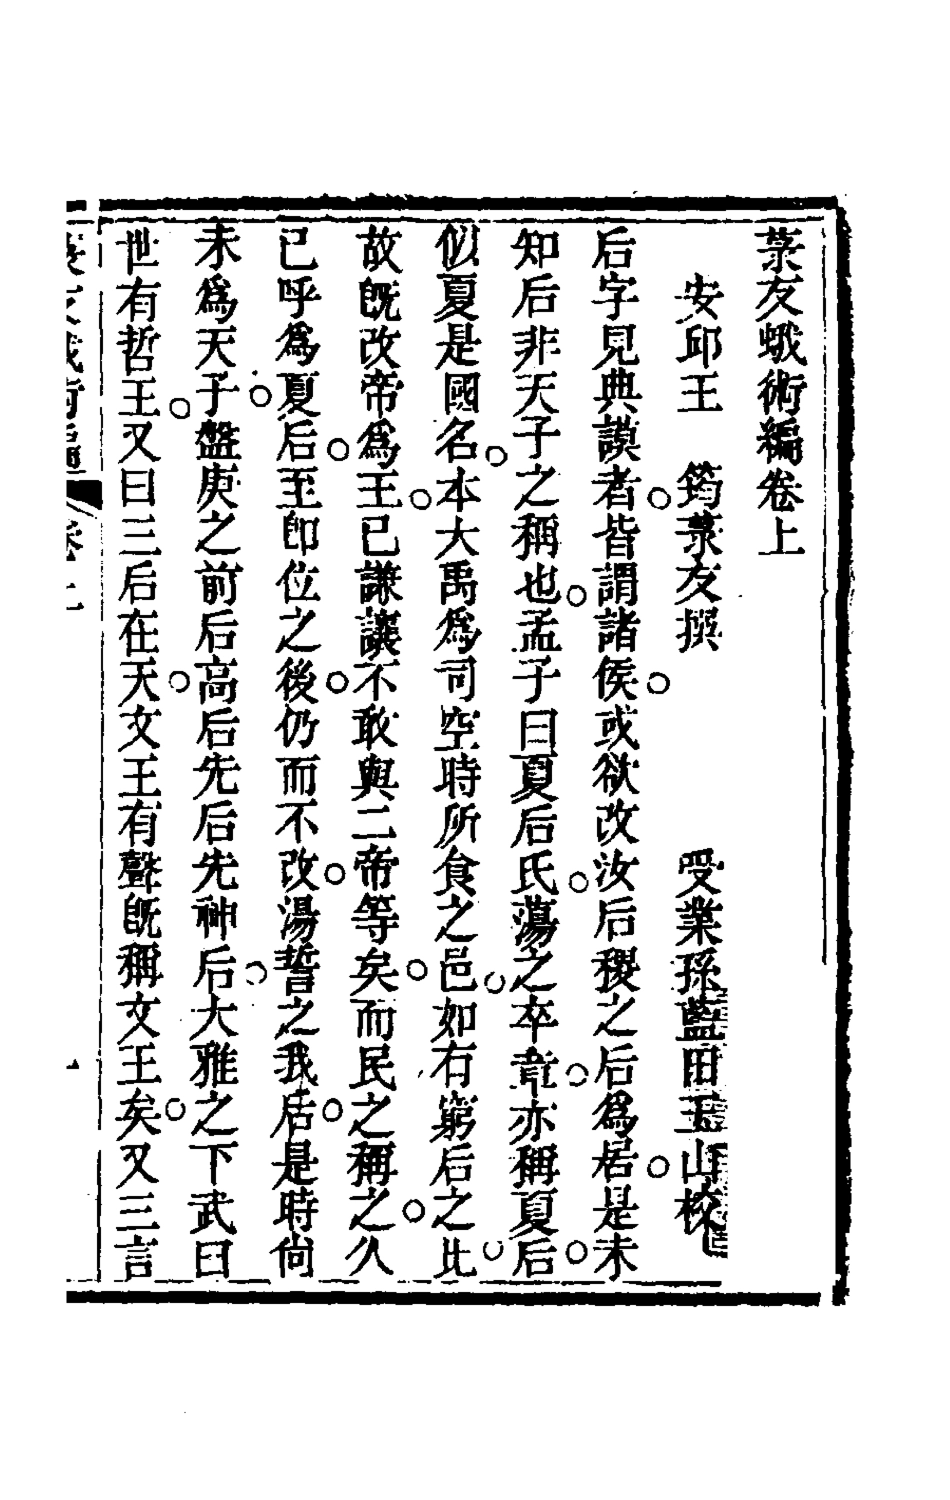 菉友蛾術編卷上
安邱王　筠菉友撰　受業孫藍田玉山校
后字見典謨者○皆謂諸侯○或欲改汝后稷之后爲居○是未
知后非天子之稱也○孟子曰夏后氏○蕩之卒章○亦稱夏后○
似夏是國名○本大禹爲司空時所食之邑○如有窮后之比○
故旣改帝爲王○已謙讓不敢與二帝等矣○而民之稱之○久
已呼爲夏后○至卽位之後○仍而不改○湯誓之我后○是時尙
未爲天子○盤庚之前后高后先后先神后○大雅之下武曰
世有哲王○又曰三后在天○文王有聲旣稱文王矣○又三言